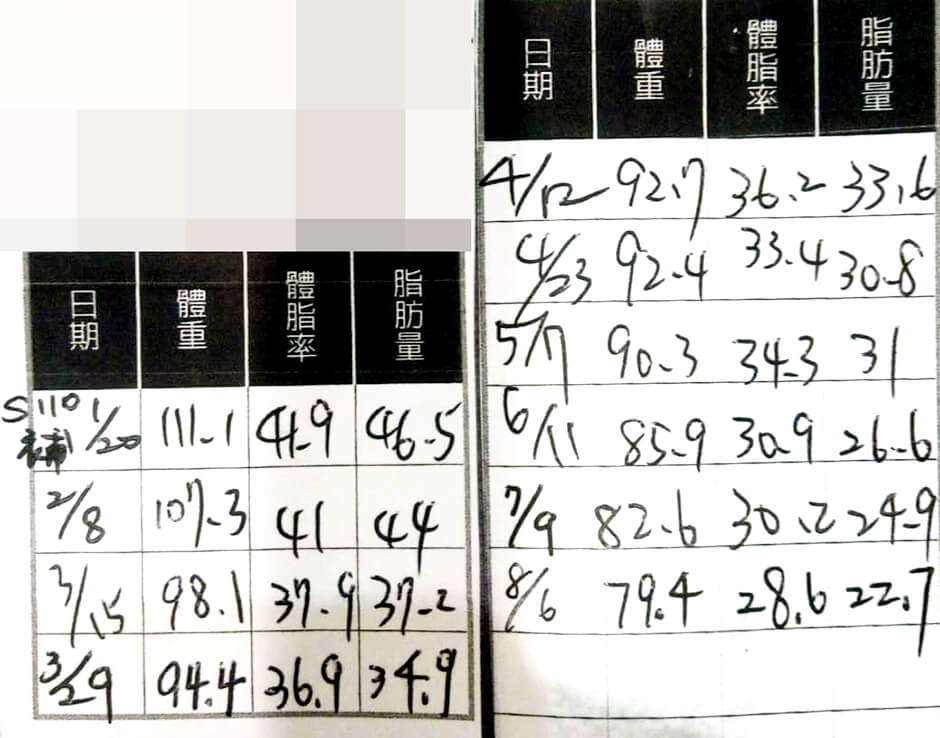 日期 體重 體脂率 脂肪量
S 110 補 1/20 111.1 41.9 46.5
2/8 107.3 41 44
3/15 98.1 37.9 37.2
3/29 94.4 36.9 34.9
日期 體重 體脂率 脂肪量
4/12 92.7 36.2 33.6
4/23 92.4 33.4 30.8
5/7 90.3 34.3 31
6/11 85.9 30.9 26.6
7/9 82.6 30.2 24.9
8/6 79.4 28.6 22.7